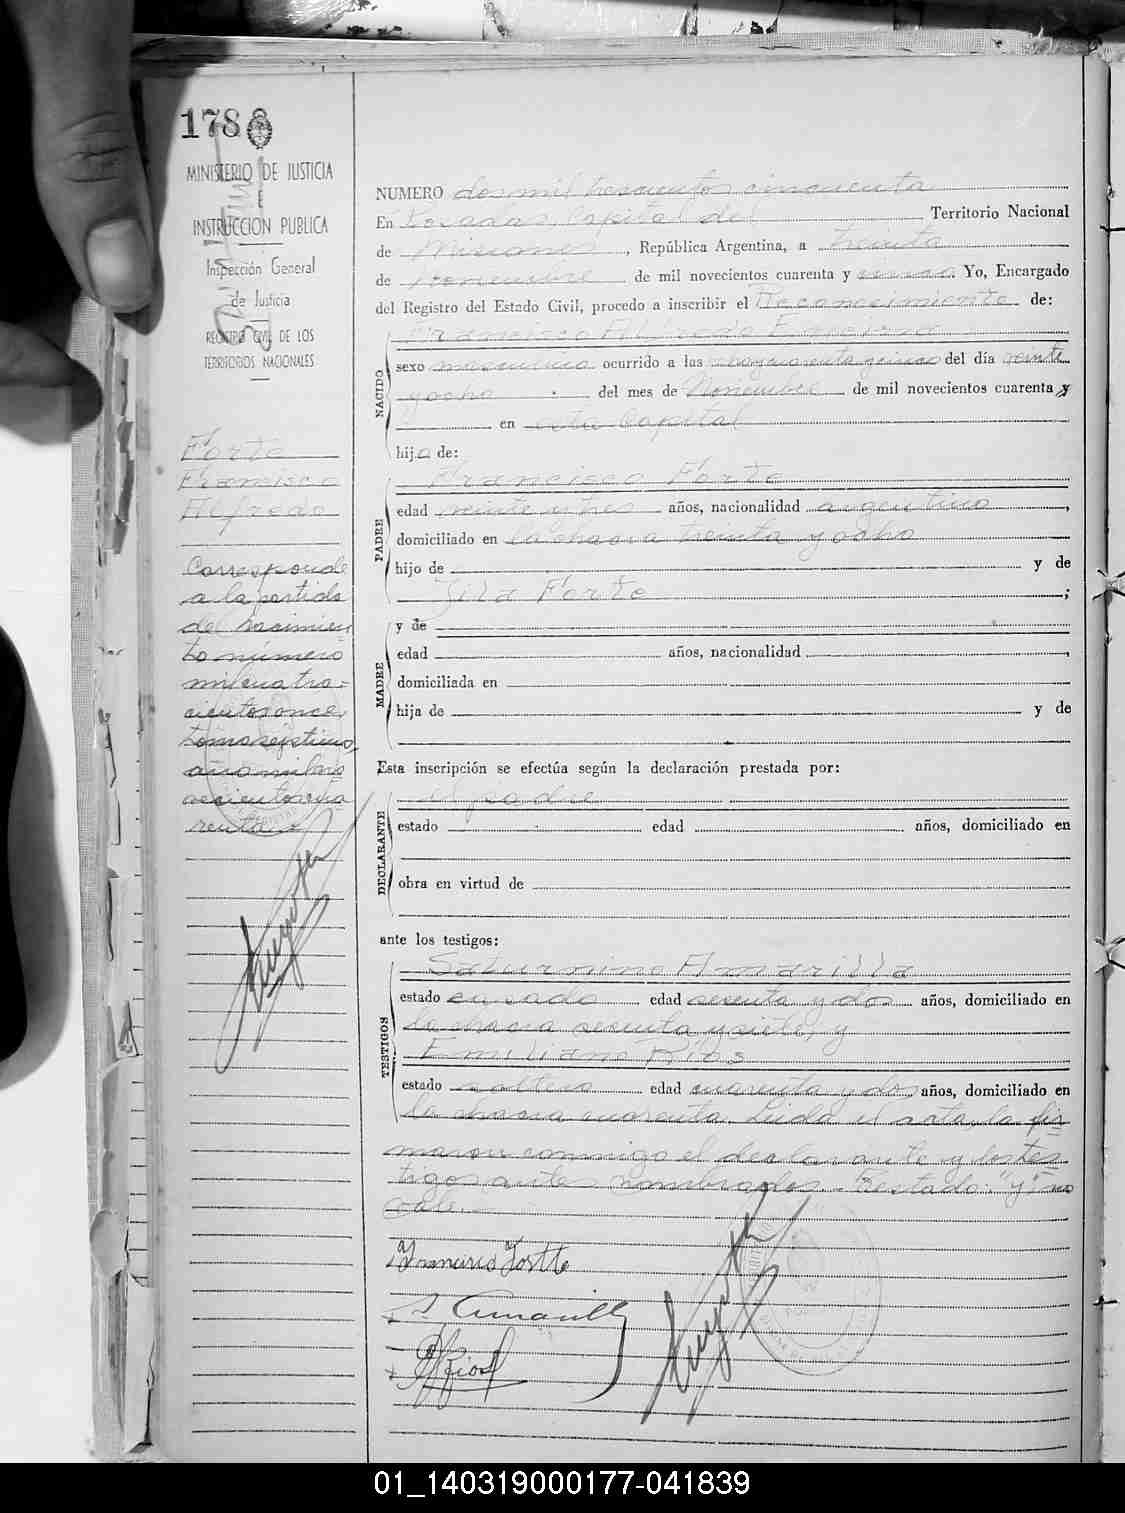 178
MINISTERIO DE JUSTICIA
E
INSTRUCCION PUBLICA
Inspección General
de Justicia
REGISTRO CIVIL DE LOS
TERRITORIOS NACIONALES
Forte
Francisco
Alfredo
Corresponde
a la partida
de nacimien
to número
mil cuatro-
cientos once,
tomo séptimo,
año mil no
vecientos cua
renta
NUMERO dos mil trescientos cincuenta
En Posadas, Capital del Territorio Nacional
de Misiones, República Argentina, a treinta
de Noviembre de mil novecientos cuarenta y Yo, Encargado
del Registro del Estado Civil, procedo a inscribir el Reconocimiento de:
NACIDO
Francisco Alfredo
sexo masculino ocurrido a las cuarenta y cinco del día veinte
y ocho del mes de Noviembre de mil novecientos cuarenta y
en esta Capital
hijo de:
PADRE
Francisco Forte
edad veinte y tres años, nacionalidad argentino,
domiciliado en la chacra treinta y ocho
hijo de y de
Forte;
MADRE
y de
edad años, nacionalidad,
domiciliada en
hija de y de
Esta inscripción se efectúa según la declaración prestada por:
DECLARANTE
el padre
estado edad años, domiciliado en
obra en virtud de
ante los testigos:
TESTIGOS
Saturnino Amarilla
estado casado edad sesenta y dos años, domiciliado en
la chacra sesenta y siete, y
Emiliano Ríos
estado soltero edad cuarenta y dos años, domiciliado en
la chacra cuarenta. Leída el acta, la fir
maron conmigo el declarante y los tes
tigos antes nombrados. Testado: "y" no
vale.
Francisco Fortte
S. Amarilla
Rios
01_140319000177-041839